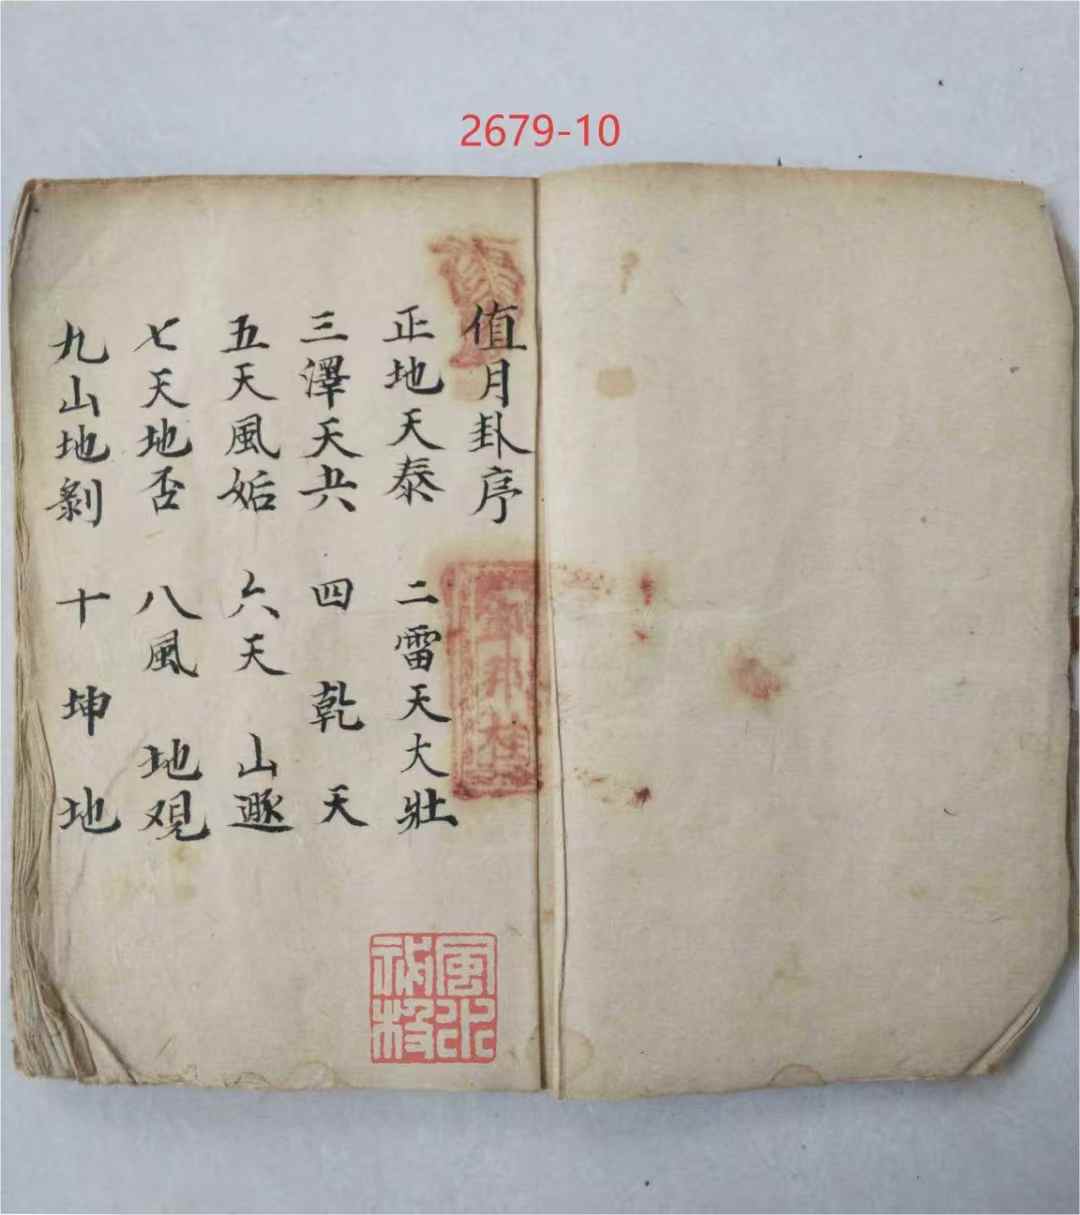 2679-10
值月卦序
正地天泰 二雷天大壯
三澤天共 四乾天
五天風姤 六天山遯
七天地否 八風地观
九山地剝 十坤地
風水